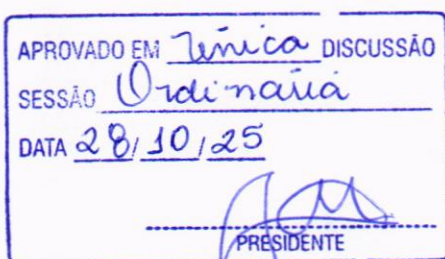 APROVADO EM Única DISCUSSÃO
SESSÃO Ordinária
DATA 28/10/25
PRESIDENTE